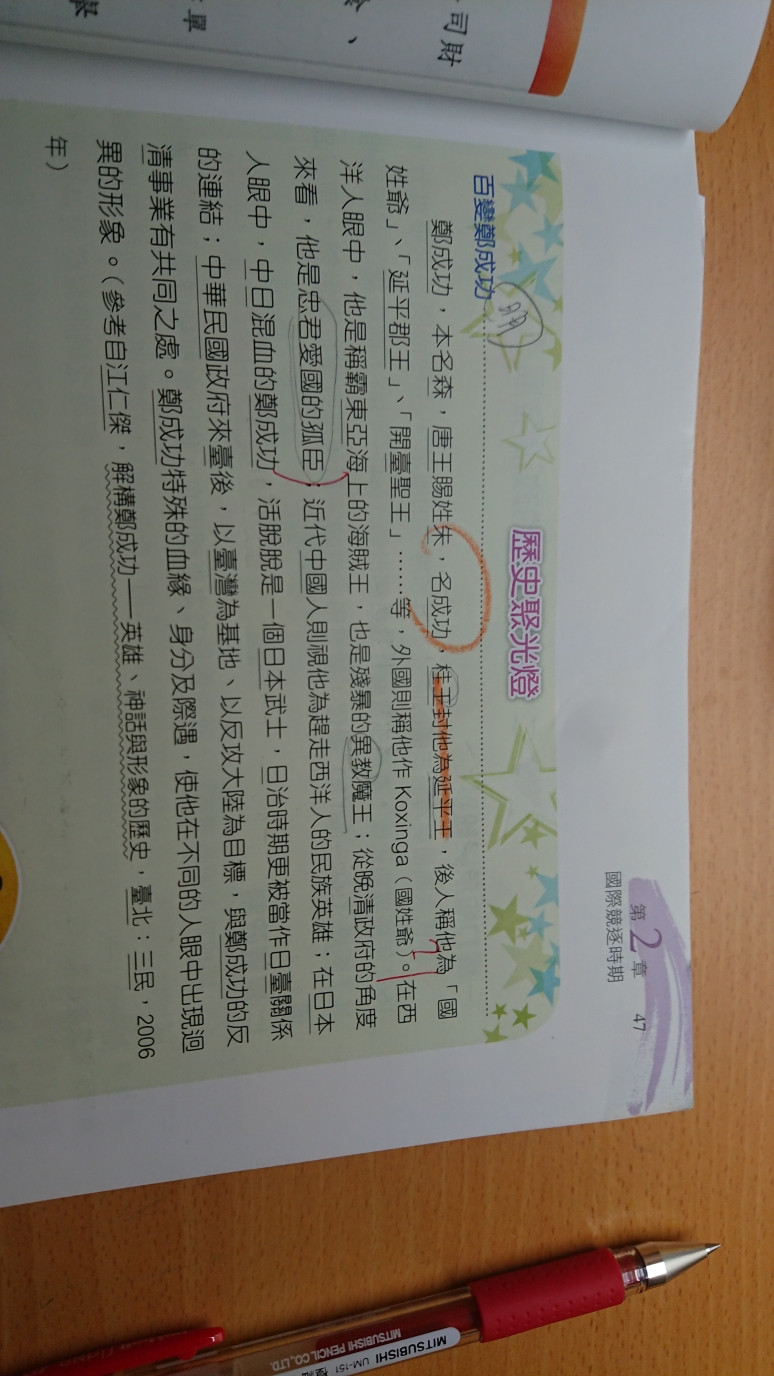 司財
單
第2章 47
國際競逐時期
歷史聚光燈
百變鄭成功 明
鄭成功，本名森，唐王賜姓朱，名成功，桂王封他為延平王，後人稱他為「國
姓爺」、「延平郡王」、「開臺聖王」……等，外國則稱他作 Koxinga（國姓爺）。在西
洋人眼中，他是稱霸東亞海上的海賊王，也是殘暴的異教魔王；從晚清政府的角度
來看，他是忠君愛國的孤臣；近代中國人則視他為趕走西洋人的民族英雄；在日本
人眼中，中日混血的鄭成功，活脫脫是一個日本武士，日治時期更被當作日臺關係
的連結；中華民國政府來臺後，以臺灣為基地、以反攻大陸為目標，與鄭成功的反
清事業有共同之處。鄭成功特殊的血緣、身分及際遇，使他在不同的人眼中出現迥
異的形象。（參考自江仁傑，解構鄭成功──英雄、神話與形象的歷史，臺北：三民，2006
年）
MITSUBISHI UM-151
MITSUBISHI PENCIL CO.,LTD.